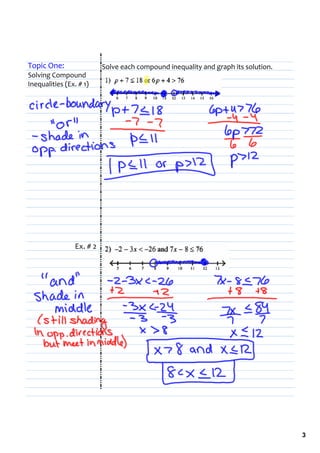 Topic One:
Solving Compound
Inequalities (Ex. # 1)
Solve each compound inequality and graph its solution.
1) p + 7 ≤ 18 or 6p + 4 > 76
6 7 8 9 10 11 12 13 14 15 16
circle-boundary
"or"
- shade in
opp directions
p+7≤18
-7 -7
p≤11
6p+4>76
-4 -4
6p>72
6 6
p>12
p≤11 or p>12
Ex. # 2
2) −2 − 3x < −26 and 7x − 8 ≤ 76
5 6 7 8 9 10 11 12 13
"and"
Shade in
middle
(still shading
in opp. directions
but meet in middle)
-2-3x<-26
+2 +2
-3x<-24
-3 -3
x>8
7x-8≤76
+8 +8
7x ≤84
7 7
x≤12
x>8 and x≤12
8<x≤12
3